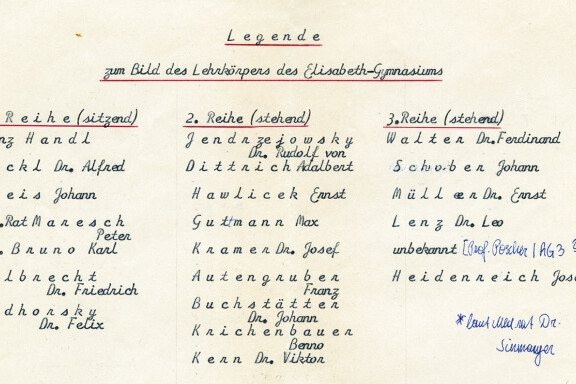 Legende
zum Bild des Lehrkörpers des Elisabeth-Gymnasiums
Reihe (sitzend)
nz Handl
ckl Dr. Alfred
eis Johann
.Rat Maresch
Peter
. Bruno Karl
lbrecht
Dr. Friedrich
dhorsky
Dr. Felix
2. Reihe (stehend)
Jendrzejowsky
Dr. Rudolf von
Dittrich Adalbert
Hawlicek Ernst
Guttmann Max
Kramer Dr. Josef
Autengruber
Franz
Buchstätter
Dr. Johann
Krichenbauer
Benno
Kern Dr. Viktor
3. Reihe (stehend)
Walter Dr. Ferdinand
Schober Johann
Müller Dr. Ernst
Lenz Dr. Leo
unbekannt [Prof. Poscher / AG 3 ?
Heidenreich Jose
* laut Med. rat Dr.